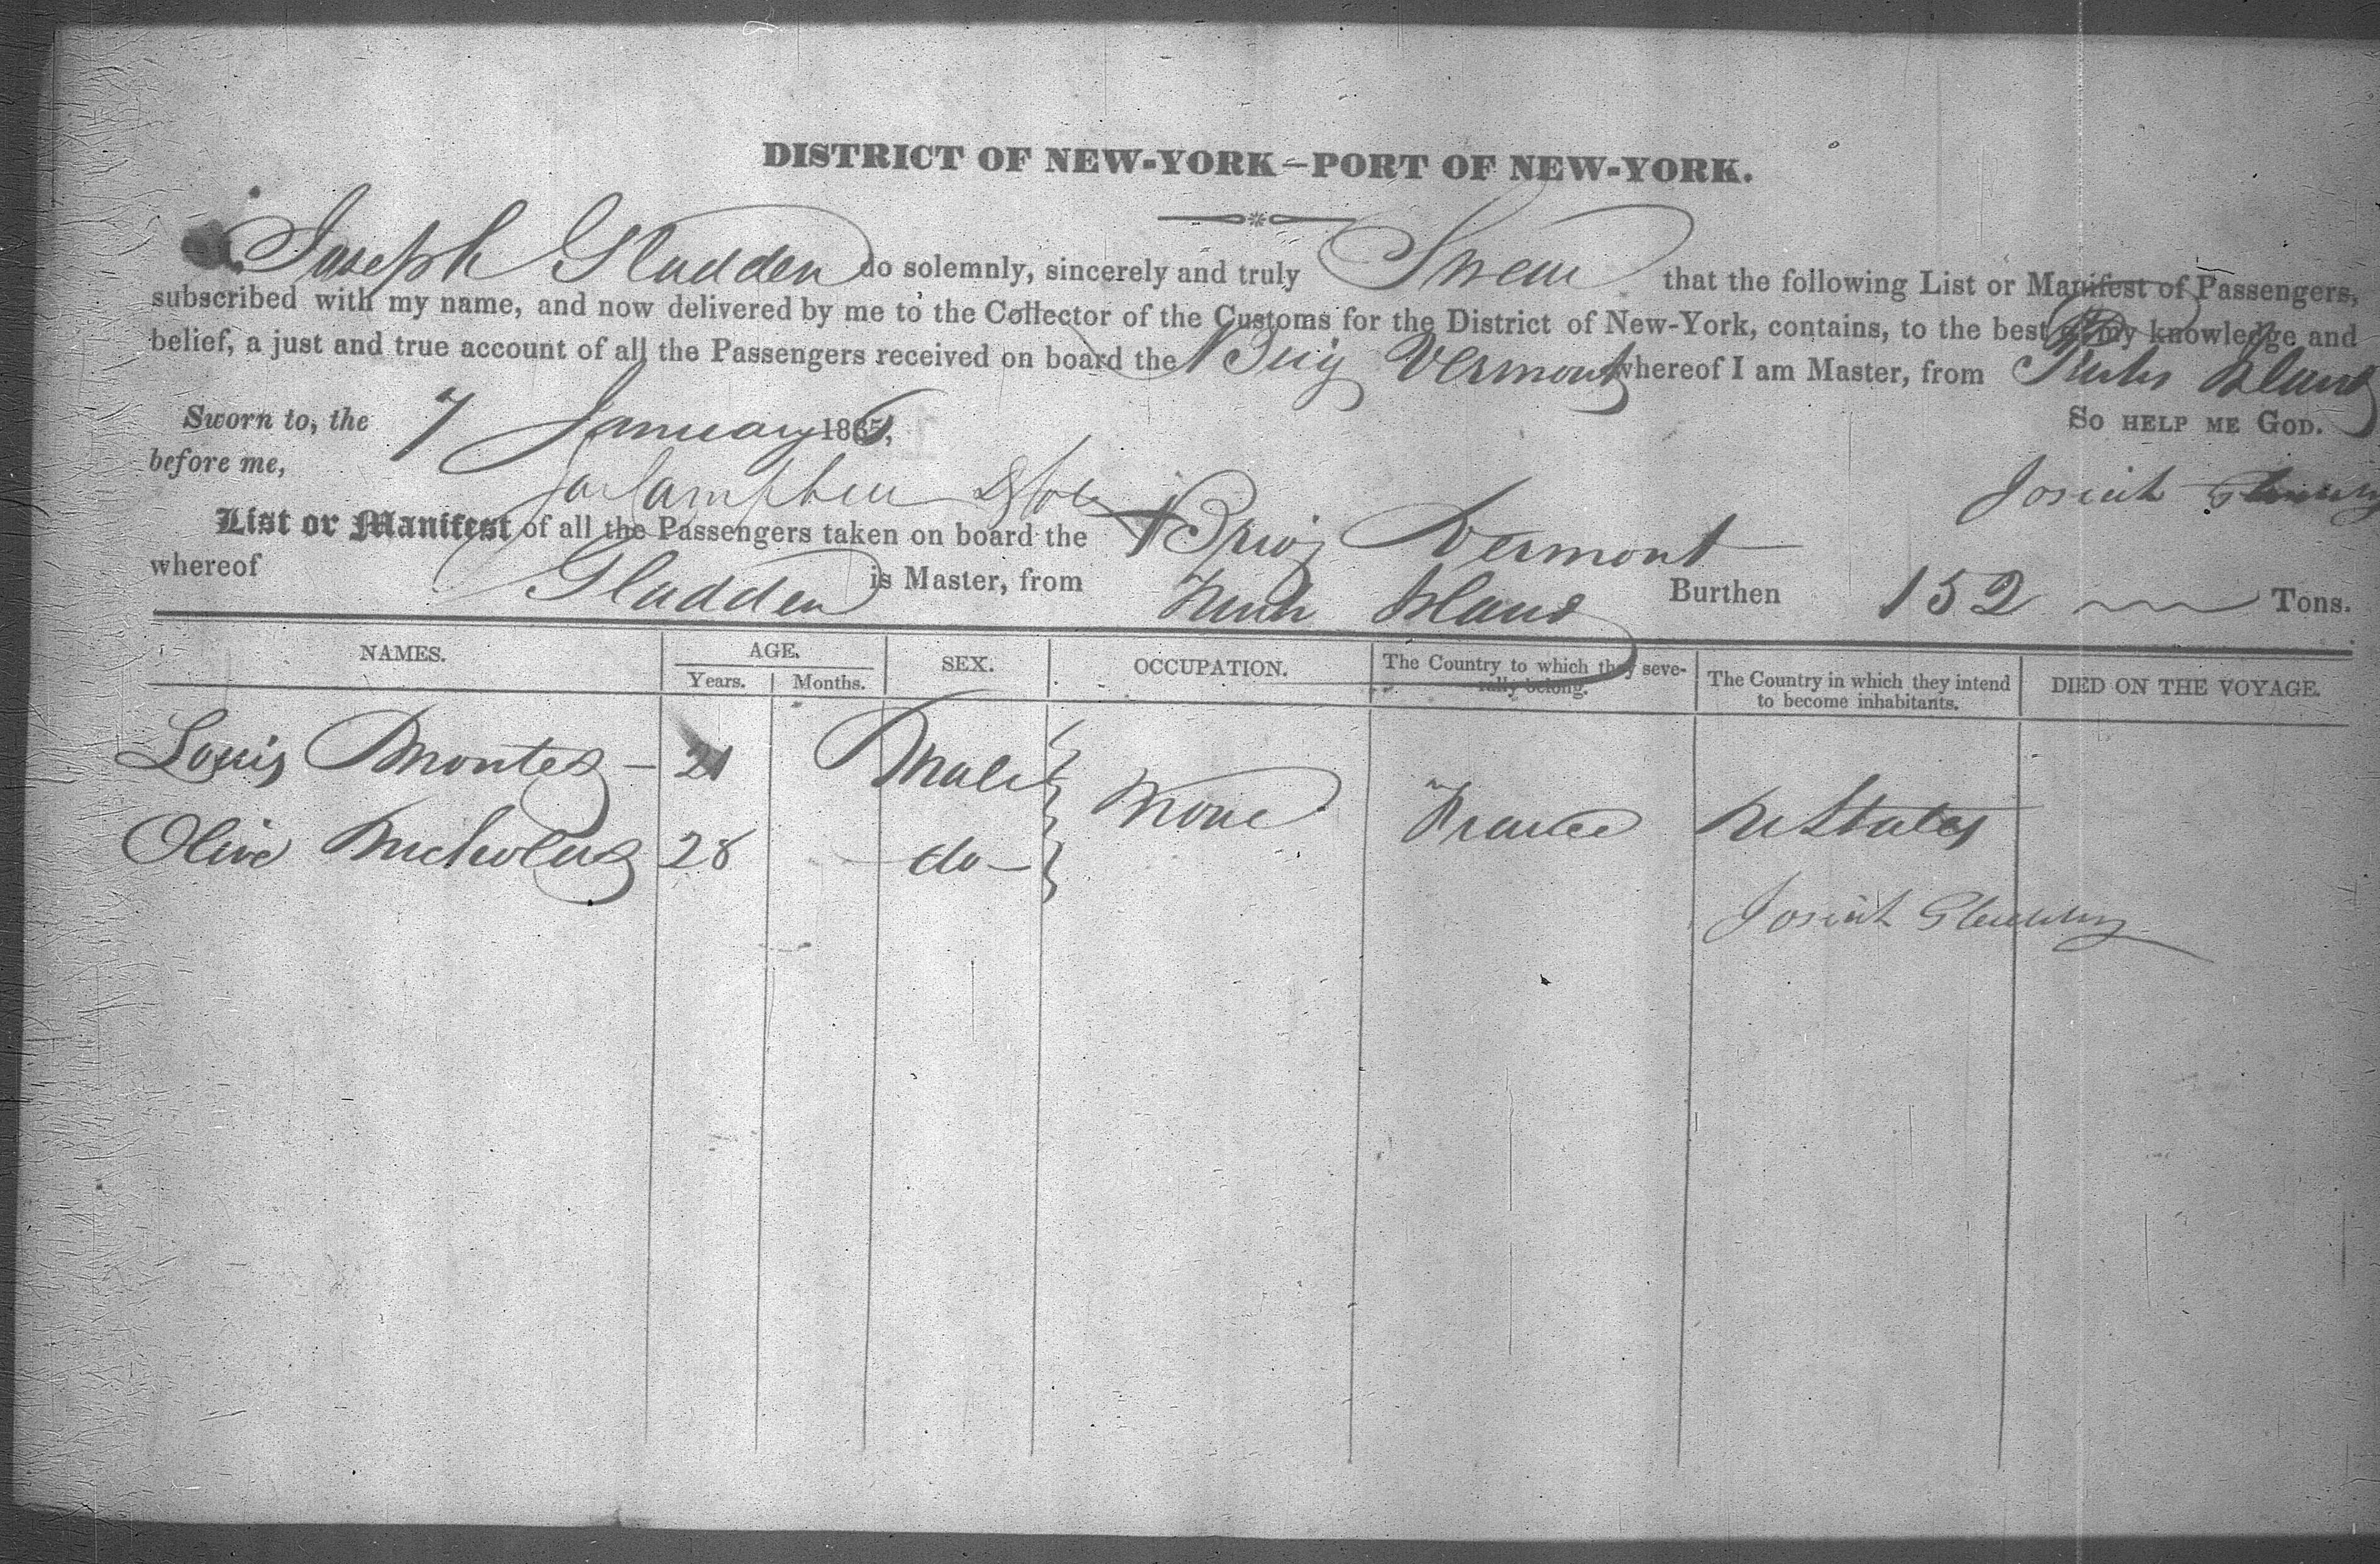 DISTRICT OF NEW-YORK—PORT OF NEW-YORK.
I Joseph Gladden do solemnly, sincerely and truly Swear that the following List or Manifest of Passengers,
subscribed with my name, and now delivered by me to the Collector of the Customs for the District of New-York, contains, to the best of my knowledge and
belief, a just and true account of all the Passengers received on board the Brig Vermont whereof I am Master, from Turks Island
Sworn to, the 7 January 1866, So HELP ME GOD.
before me,
Josiah
List or Manifest of all the Passengers taken on board the Brig Vermont
whereof Gladden is Master, from Turks Island Burthen 152 Tons.
NAMES. AGE. SEX. OCCUPATION. The Country to which they severally belong. The Country in which they intend to become inhabitants. DIED ON THE VOYAGE.
Years. Months.
Louis Montes 21 Male None France U States
Olive Nicholas 28 do
Josiah